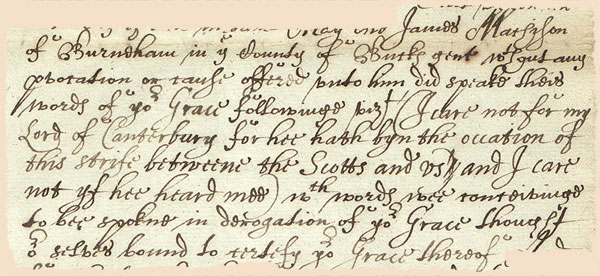 May James Mathyson
of Burneham in ye County of Bucks gent wthout any
pvocation or cause offered vnto him did speake theis
words of yor Grace followinge vizt (I care not for my
Lord of Canterbury for hee hath byn the occation of
this strife betweene the Scotts and vs // and I care
not yf hee heard mee) wch words wee conceivinge
to bee spokne in derogation of yor Grace thought
or selves bound to certefy yor Grace thereof